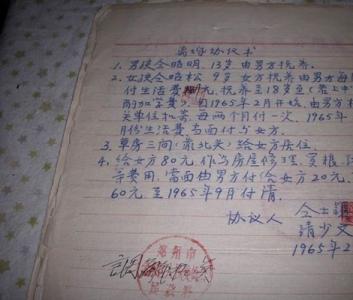 离婚协议书
1. 男孩仝皓明，13岁由男方抚养
2. 女孩仝皓松 9岁女方抚养由男方每
付生活费 元，抚养至18岁至(若上中
学加学费)，自1965年2月开始，由男方
关单位扣寄，每两个月付一次，1965年
月份生活费当面付与女方.
3. 草房三间(靠北头)给女方居住.
4. 给女方80元，作为房屋修理
等费用，当面由男方付给女方20元.
60元至1965年9月付清.
协议人 仝士
1965年2
郑州市